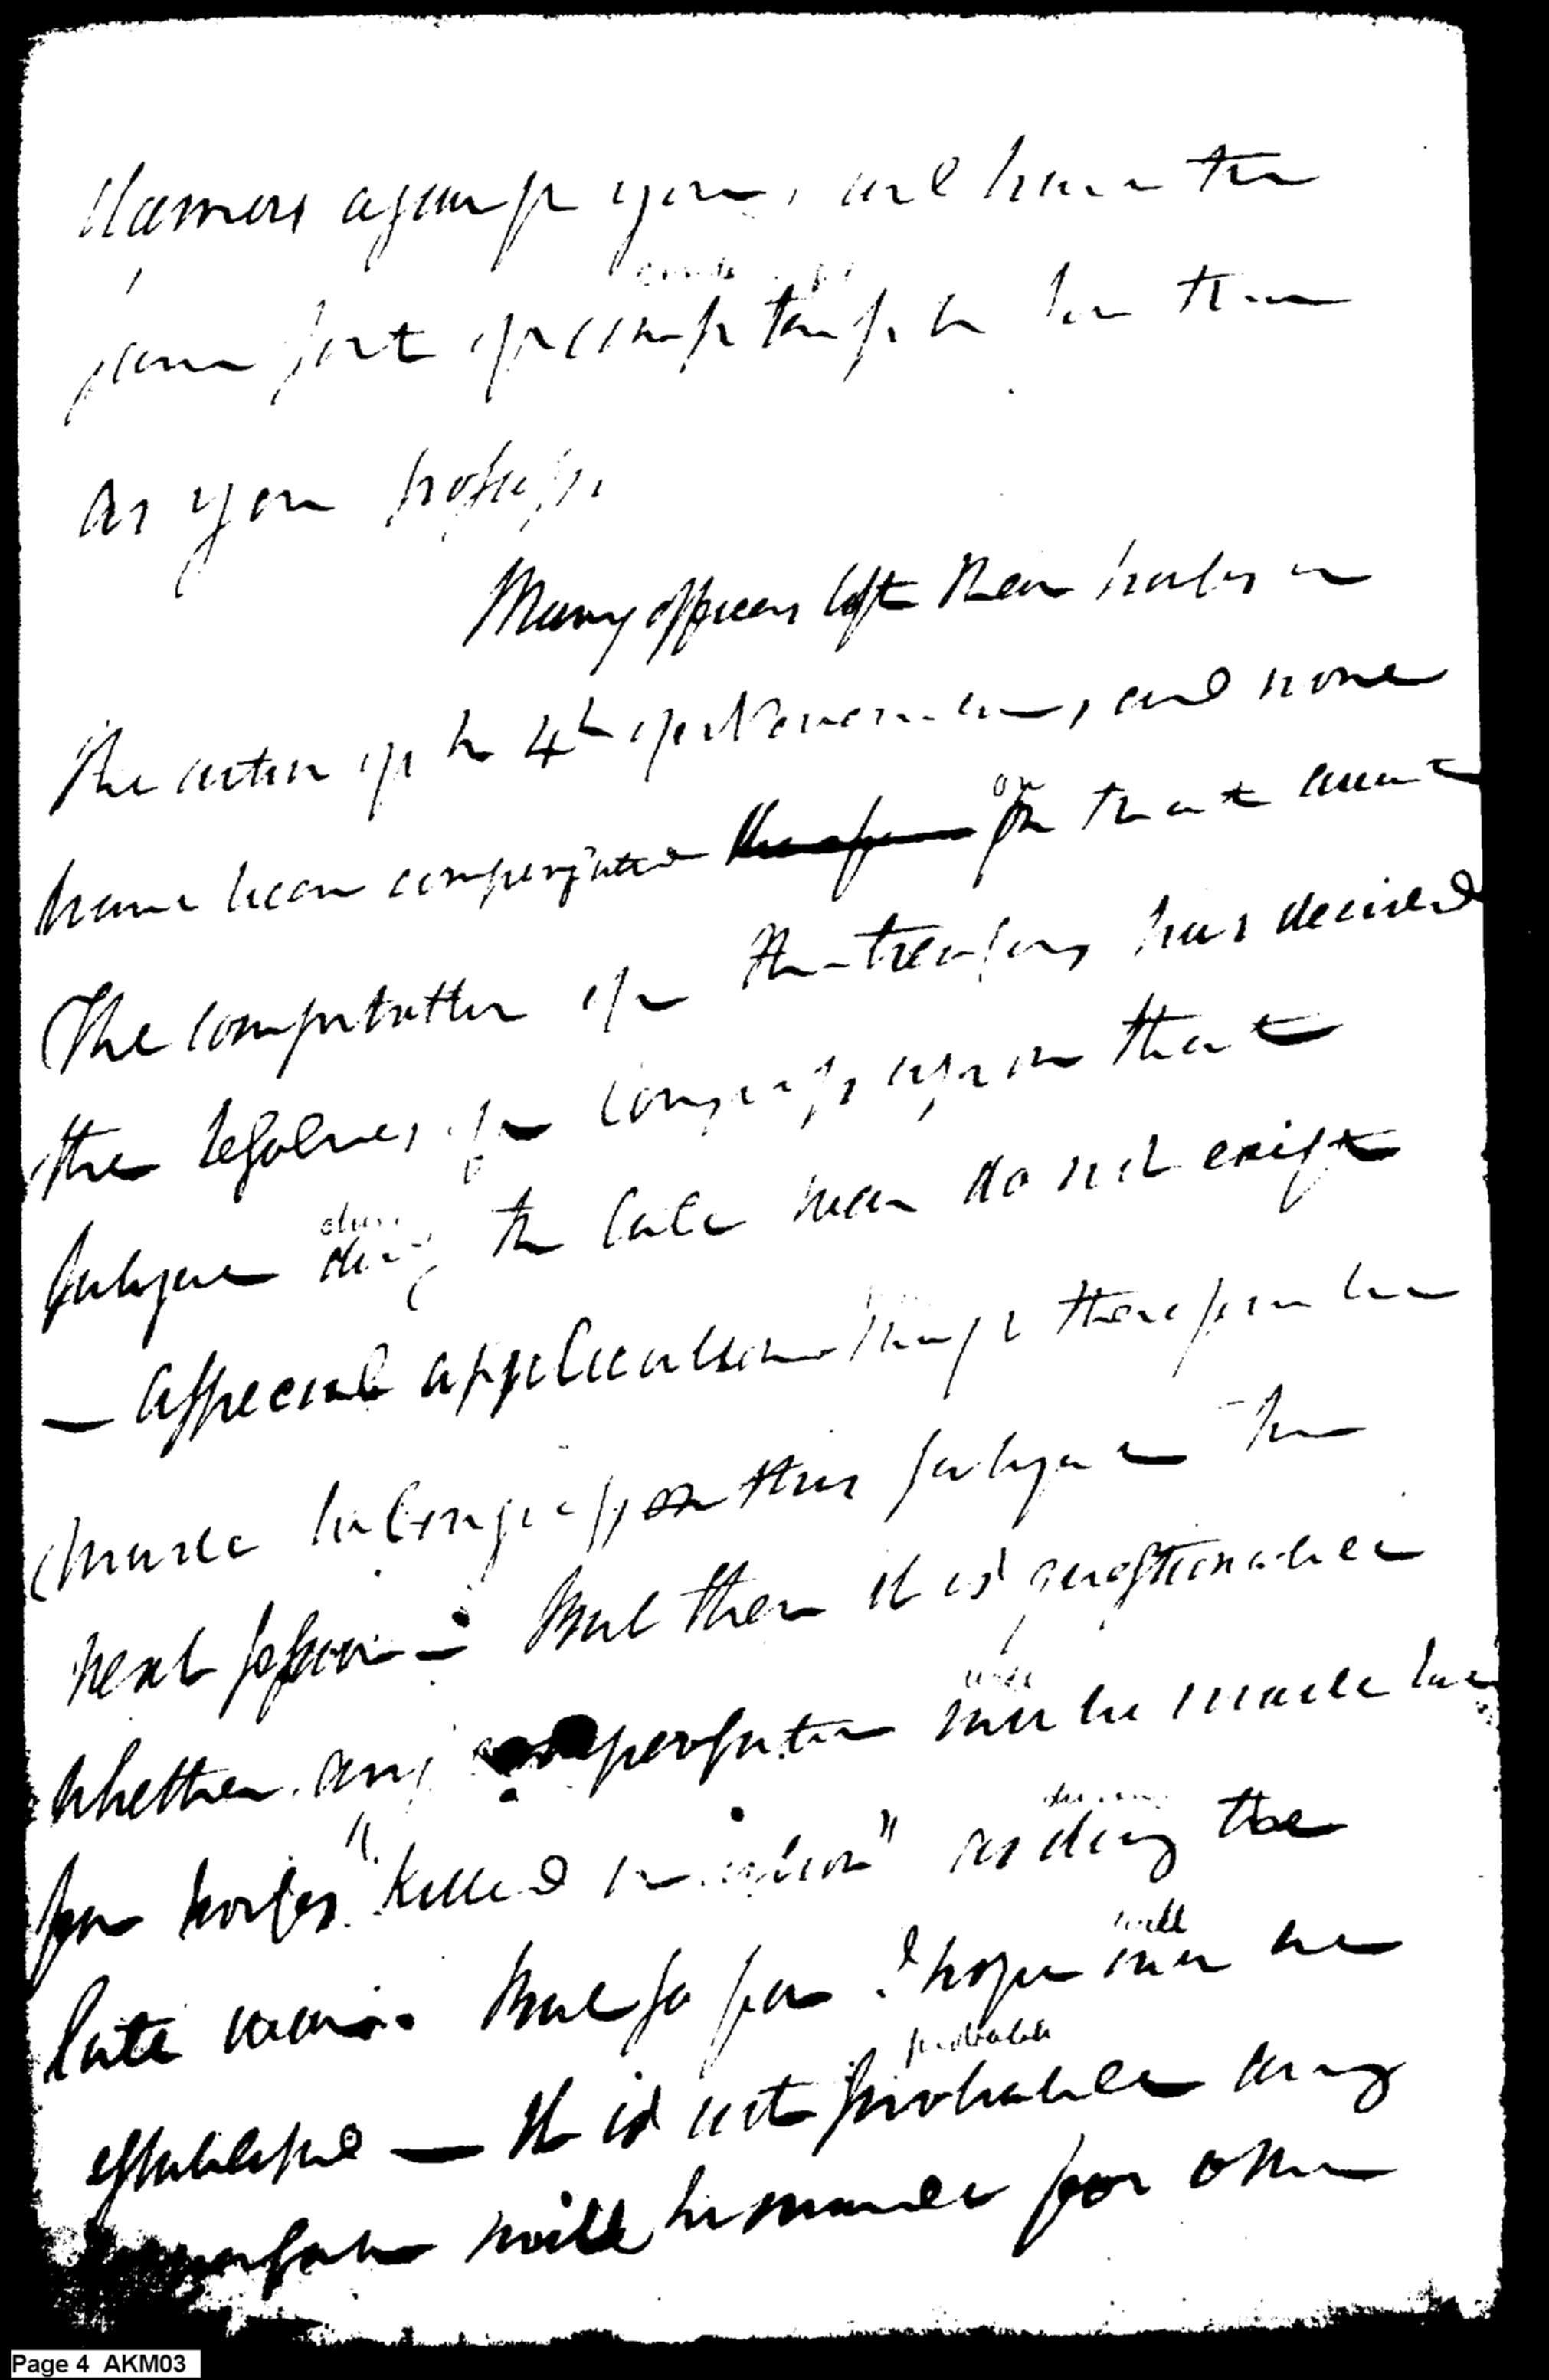 clamors against you, and have the
same sort of complaints to be them
as you possess.
Many officers lost their horses in
the action of the 4th of November, and none
have been compensated on that account
The comptroller of the treasury has decided
the resolves of Congress upon that
subject during the late war do not exist
— a special application must therefore be
made to Congress on this subject the
next session — But then it is questionable
whether any compensation will be made but
for horses "killed in action" as during the
late war. But so far I hope will be
established — It is not probable any
will be made for other
Page 4 AKM03